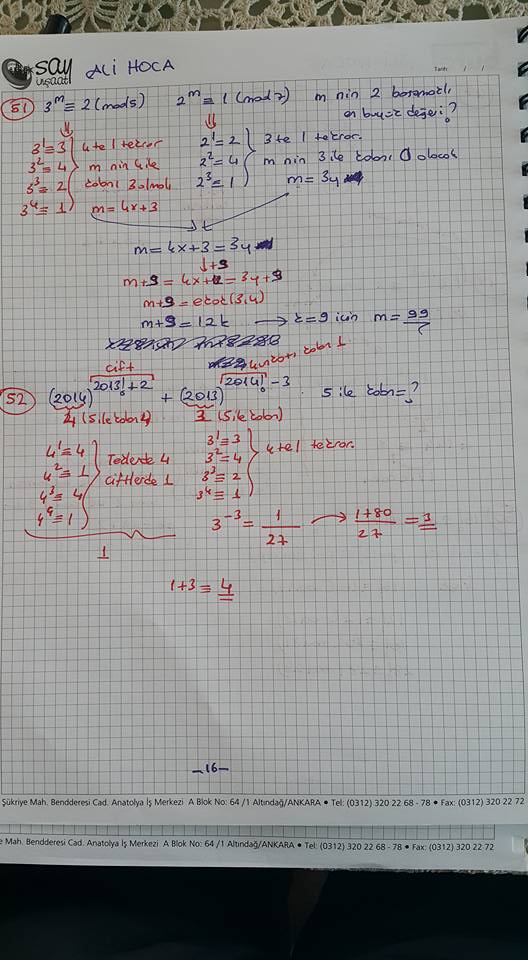 say inşaat ALİ HOCA Tarih: / /
51 3^m ≡ 2 (mod5) 2^m ≡ 1 (mod 7) m nin 2 basamaklı
en büyük değeri?
3^1 ≡ 3 4 te 1 tekrar 2^1 = 2 3 te 1 tekrar.
3^2 = 4 m nin 4 ile 2^2 = 4 m nin 3 ile kalanı 0 olacak
3^3 = 2 kalanı 3 olmalı 2^3 = 1 m = 3y
3^4 ≡ 1 m = 4x+3
m = 4x+3 = 3y
↓+9
m+9 = 4x+12 = 3y+9
m+9 = ekok(3,4)
m+9 = 12k → k=9 için m = 99
52 (2014)^2013!+2 + (2013)^2014!-3 5 ile kalan = ?
çift
4 (5 ile kalan) 3 (5 ile kalan)
4^1 = 4 Teklerde 4 3^1 ≡ 3 4 te 1 tekrar.
4^2 ≡ 1 Çiftlerde 1 3^2 = 4
4^3 ≡ 4 3^3 ≡ 2
4^4 ≡ 1 3^4 ≡ 1
1 3^-3 = 1/27 → 1+80/27 = 3
1+3 = 4
-16-
Şükriye Mah. Bendderesi Cad. Anatolya İş Merkezi A Blok No: 64 /1 Altındağ/ANKARA • Tel: (0312) 320 22 68 - 78 • Fax: (0312) 320 22 72
e Mah. Bendderesi Cad. Anatolya İş Merkezi A Blok No: 64 /1 Altındağ/ANKARA • Tel: (0312) 320 22 68 - 78 • Fax: (0312) 320 22 72